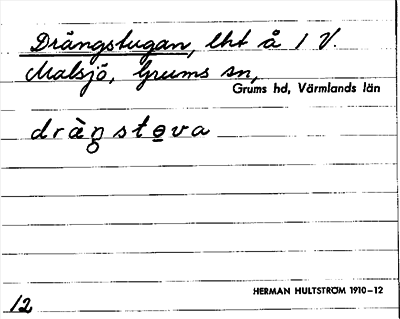 Drängstugan, lht å 1 V.
Malsjö, Grums sn,
Grums hd, Värmlands län
dràn̥ sto̲va
HERMAN HULTSTRÖM 1910–12
12